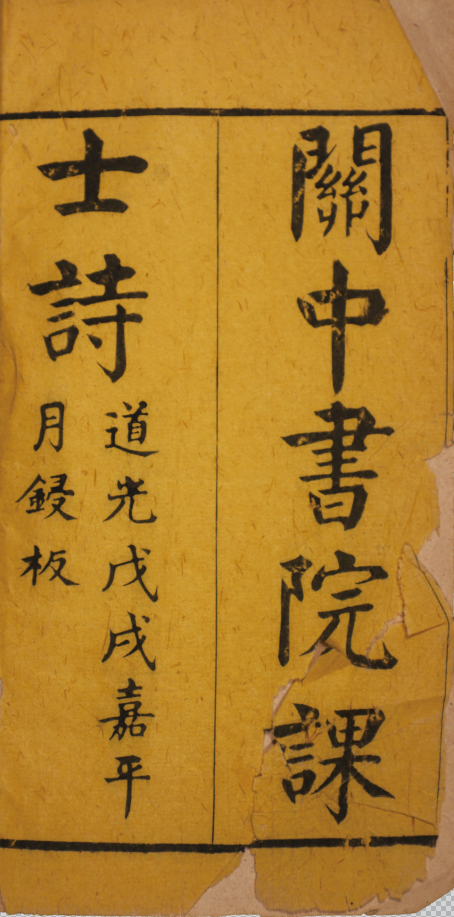 關中書院課
士詩
道光戊戌嘉平
月鋟板